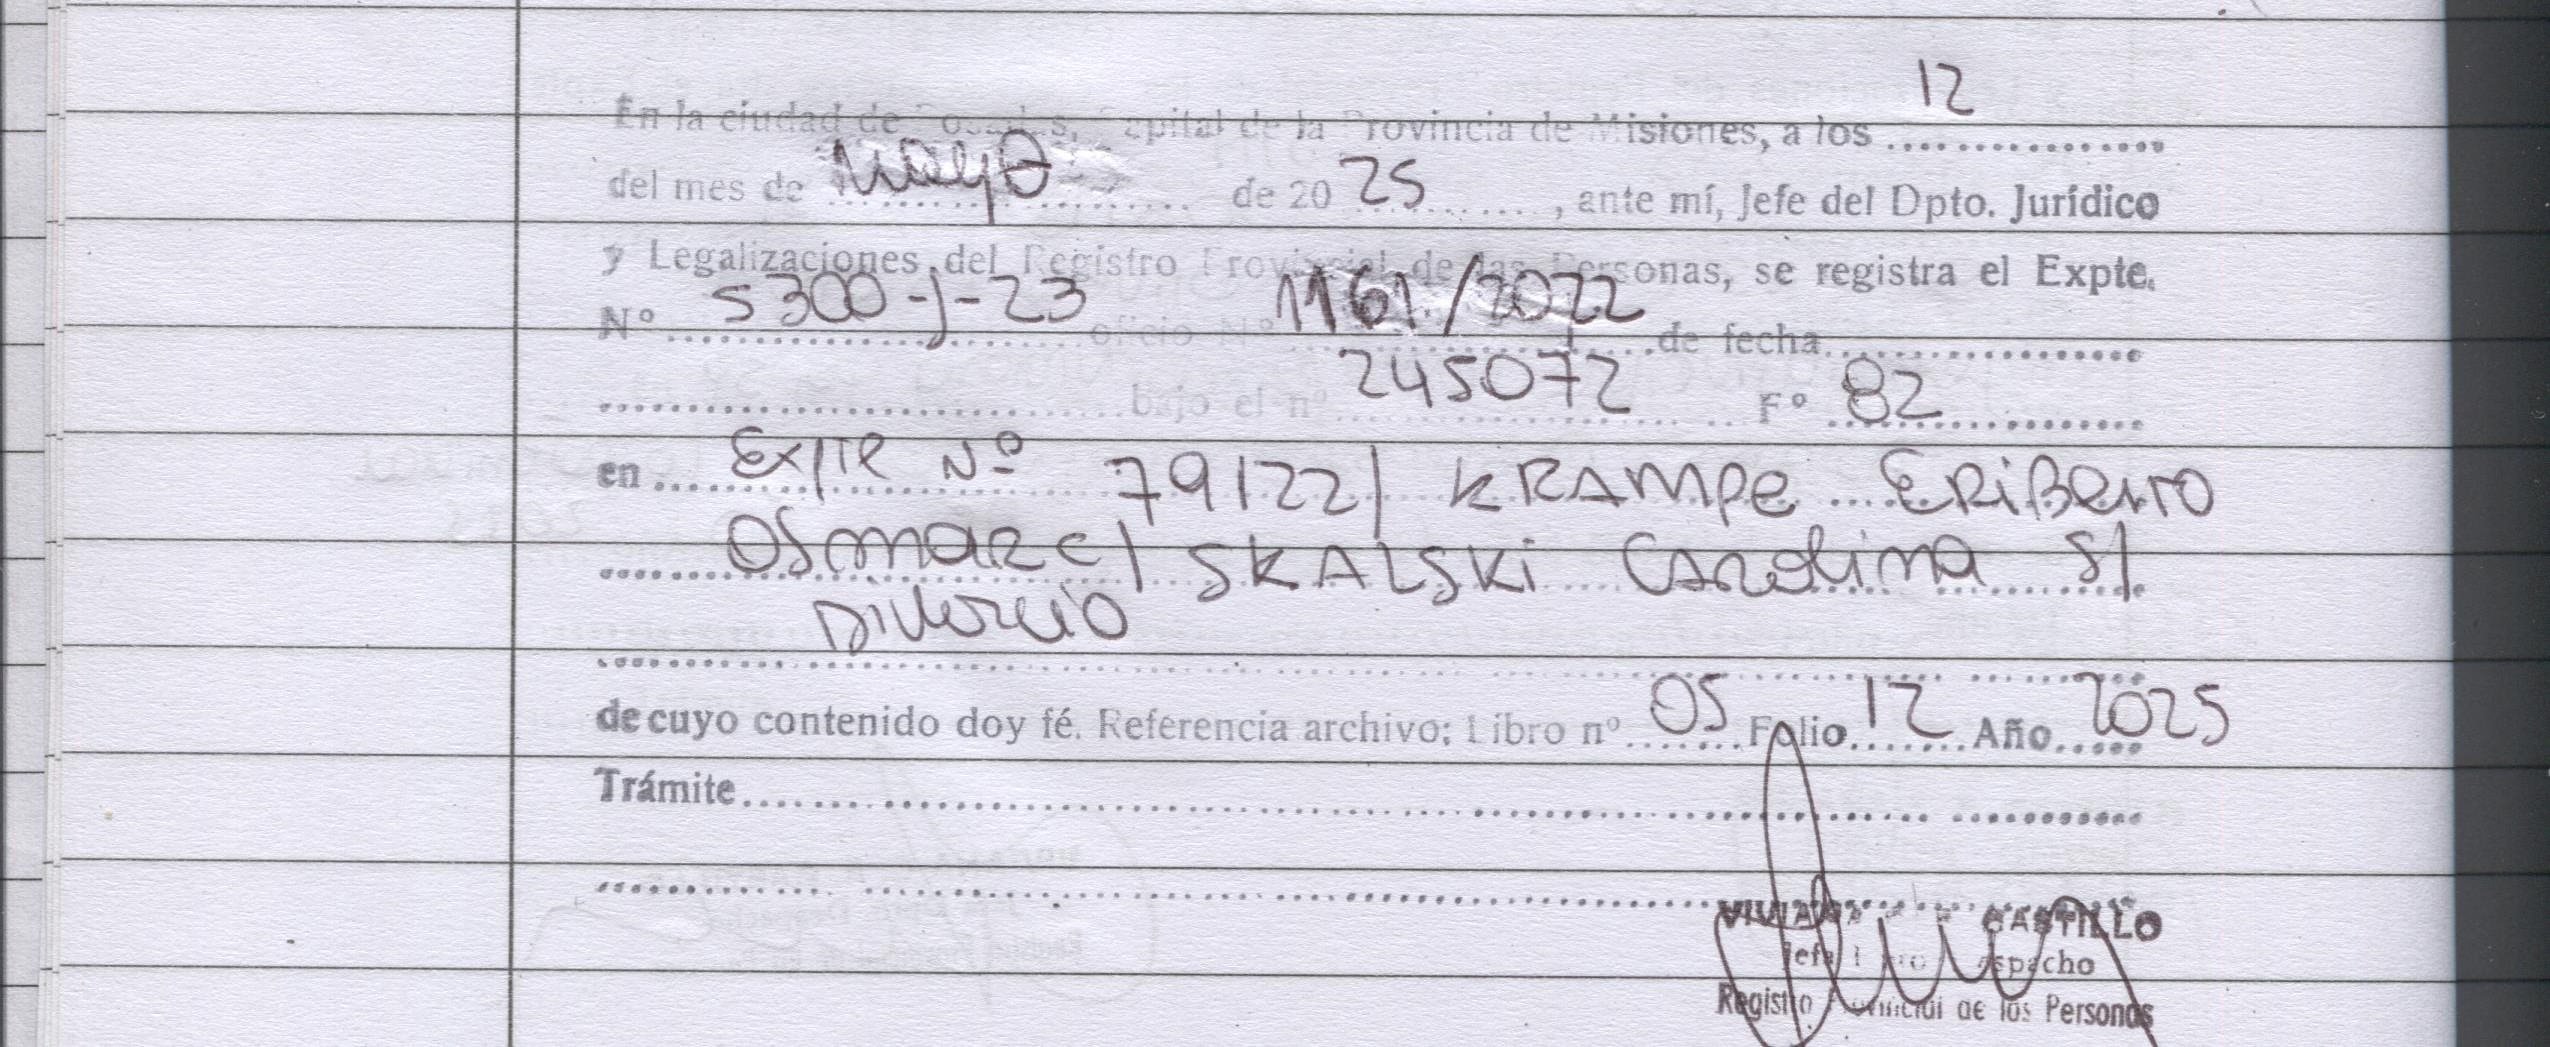 12
En la ciudad de Posadas, Capital de la Provincia de Misiones, a los ................
del mes de mayo de 20 25 , ante mí, Jefe del Dpto. Jurídico
y Legalizaciones del Registro Provincial de las Personas, se registra el Expte.
Nº 5300-J-23 oficio Nº 1161/2022 de fecha................
................ bajo el nº 245072 Fº 82
en Expte Nº 79122/ KRAMPE ERIBERTO
OSMAR C/ SKALSKI CAROLINA S/
DIVORCIO
de cuyo contenido doy fé. Referencia archivo; Libro nº 05 Folio 12 Año 2025
Trámite................
VIVIANA CASTILLO
Jefa Despacho
Registro Provincial de las Personas